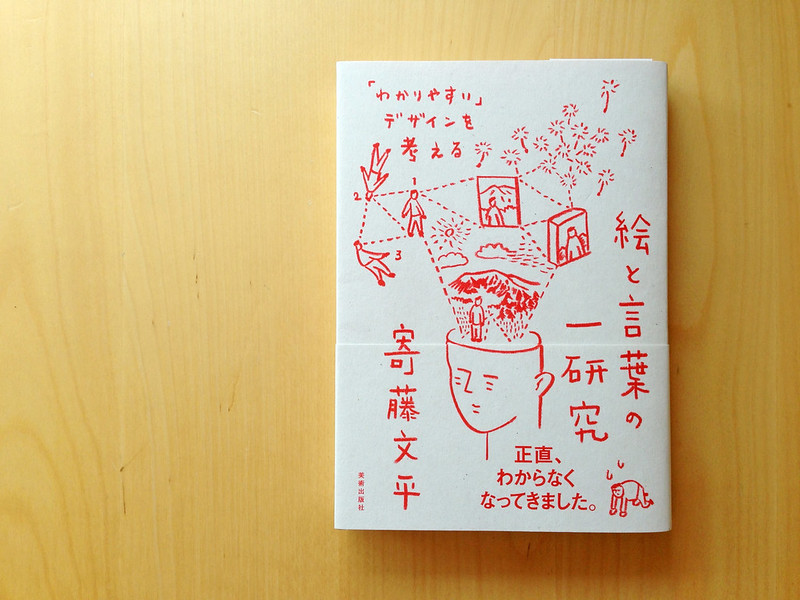 「わかりやすい」
デザインを
考える
1
2
3
絵と言葉の
一研究
寄藤文平
正直、
わからなく
なってきました。
美術出版社